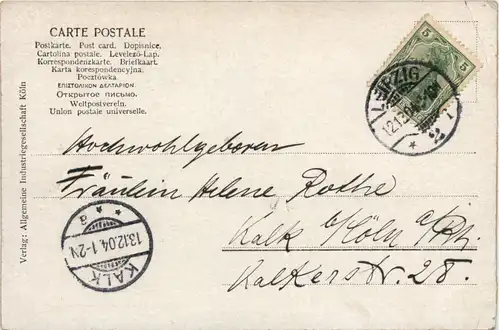 CARTE POSTALE
Postkarte. Post card. Dopisnice.
Cartolina postale. Levelező-Lap.
Korrespondenzkarte. Briefkaart.
Karta korespondencyjna.
Pocztówka.
ΕΠΙΣΤΟΛΙΚΟΝ ΔΕΛΤΑΡΙΟΝ.
Открытое письмо.
Weltpostverein.
Union postale universelle.
5 5
LEIPZIG
Hochwohlgeboren
Fräulein Helene Rothe
Kalk b/Cöln a/Rh.
Kalkerstr. 28.
KALK
13.12.04.1-2N
a
Verlag: Allgemeine Industriegesellschaft Köln